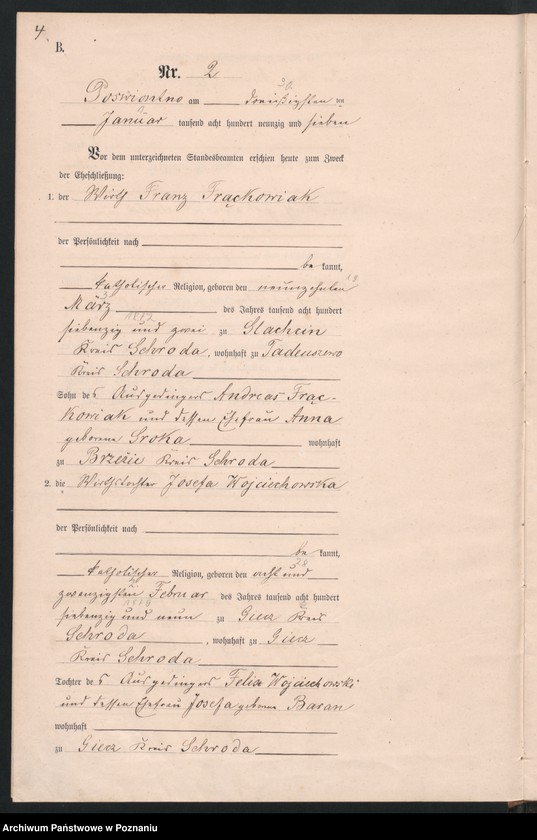 4.
B.
Nr. 2
30
Poswiontno am dreißigsten
Januar tausend acht hundert neunzig und sieben
Vor dem unterzeichneten Standesbeamten erschien heute zum Zweck
der Eheschließung:
1. der Wirth Franz Frąckowiak
der Persönlichkeit nach
be kannt,
katholischer Religion, geboren den neunzehnten 19
März des Jahres tausend acht hundert
1872
siebenzig und zwei zu Slachcin
Kreis Schroda, wohnhaft zu Tadeuszewo
Kreis Schroda
Sohn des Ausgedingers Andreas Frąc-
kowiak und dessen Ehefrau Anna
geborene Sroka wohnhaft
zu Brzezie Kreis Schroda
2. die Wirthstochter Josefa Wojciechowska
der Persönlichkeit nach
be kannt,
28
katholischer Religion, geboren den acht und
zwanzigsten Februar des Jahres tausend acht hundert
1879
siebenzig und neun zu Giecz Kreis
Schroda, wohnhaft zu Giecz
Kreis Schroda
Tochter des Ausgedingers Felix Wojciechowski
und dessen Ehefrau Josefa geborene Baran
wohnhaft
zu Giecz Kreis Schroda
Archiwum Państwowe w Poznaniu